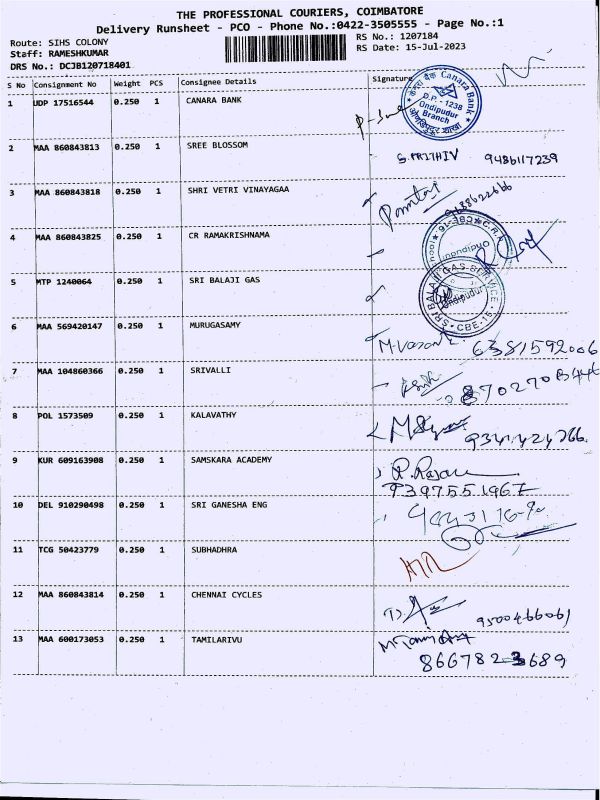 THE PROFESSIONAL COURIERS, COIMBATORE
Delivery Runsheet - PCO - Phone No.:0422-3505555 - Page No.:1
Route: SIHS COLONY RS No.: 1207184
Staff: RAMESHKUMAR RS Date: 15-Jul-2023
DRS No.: DCJB120718401
S No Consignment No Weight PCS Consignee Details Signature
1 UDP 17516544 0.250 1 CANARA BANK
Canara Bank
D.P. - 1238
Ondipudur
Branch
2 MAA 860843813 0.250 1 SREE BLOSSOM S. PRITHIV 9486117239
3 MAA 860843818 0.250 1 SHRI VETRI VINAYAGAA
4 MAA 860843825 0.250 1 CR RAMAKRISHNAMA
5 MTP 1240064 0.250 1 SRI BALAJI GAS
SRI BALAJI GAS SERVICE
Ondipudur
CBE-16
6 MAA 569420147 0.250 1 MURUGASAMY 6381592006
7 MAA 104860366 0.250 1 SRIVALLI
8 POL 1573509 0.250 1 KALAVATHY
9 KUR 609163908 0.250 1 SAMSKARA ACADEMY
9397551967
10 DEL 910290498 0.250 1 SRI GANESHA ENG
11 TCG 50423779 0.250 1 SUBHADHRA
12 MAA 860843814 0.250 1 CHENNAI CYCLES 9500466061
13 MAA 600173053 0.250 1 TAMILARIVU
8667823689